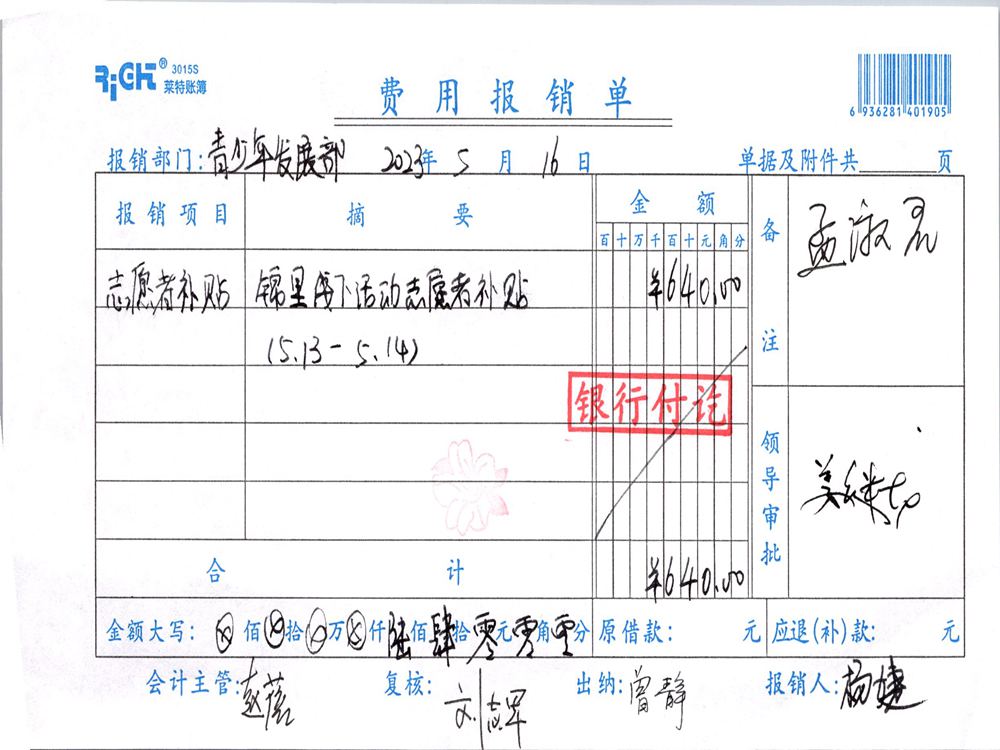 RiGHT® 3015S
莱特账簿
费用报销单
6 936281 401905
报销部门：青少年发展部 2023年 5 月 16 日 单据及附件共 页
报销项目 摘要 金额 备注
百十万千百十元角分
志愿者补贴 锦里线下活动志愿者补贴 ¥640.00
(5.13-5.14)
银行付讫
领导审批
合计 ¥640.00
金额大写：⊗佰⊗拾⊗万⊗仟陆佰肆拾零元零角零分 原借款： 元 应退(补)款： 元
会计主管： 复核：刘志军 出纳：曾静 报销人：杨婕